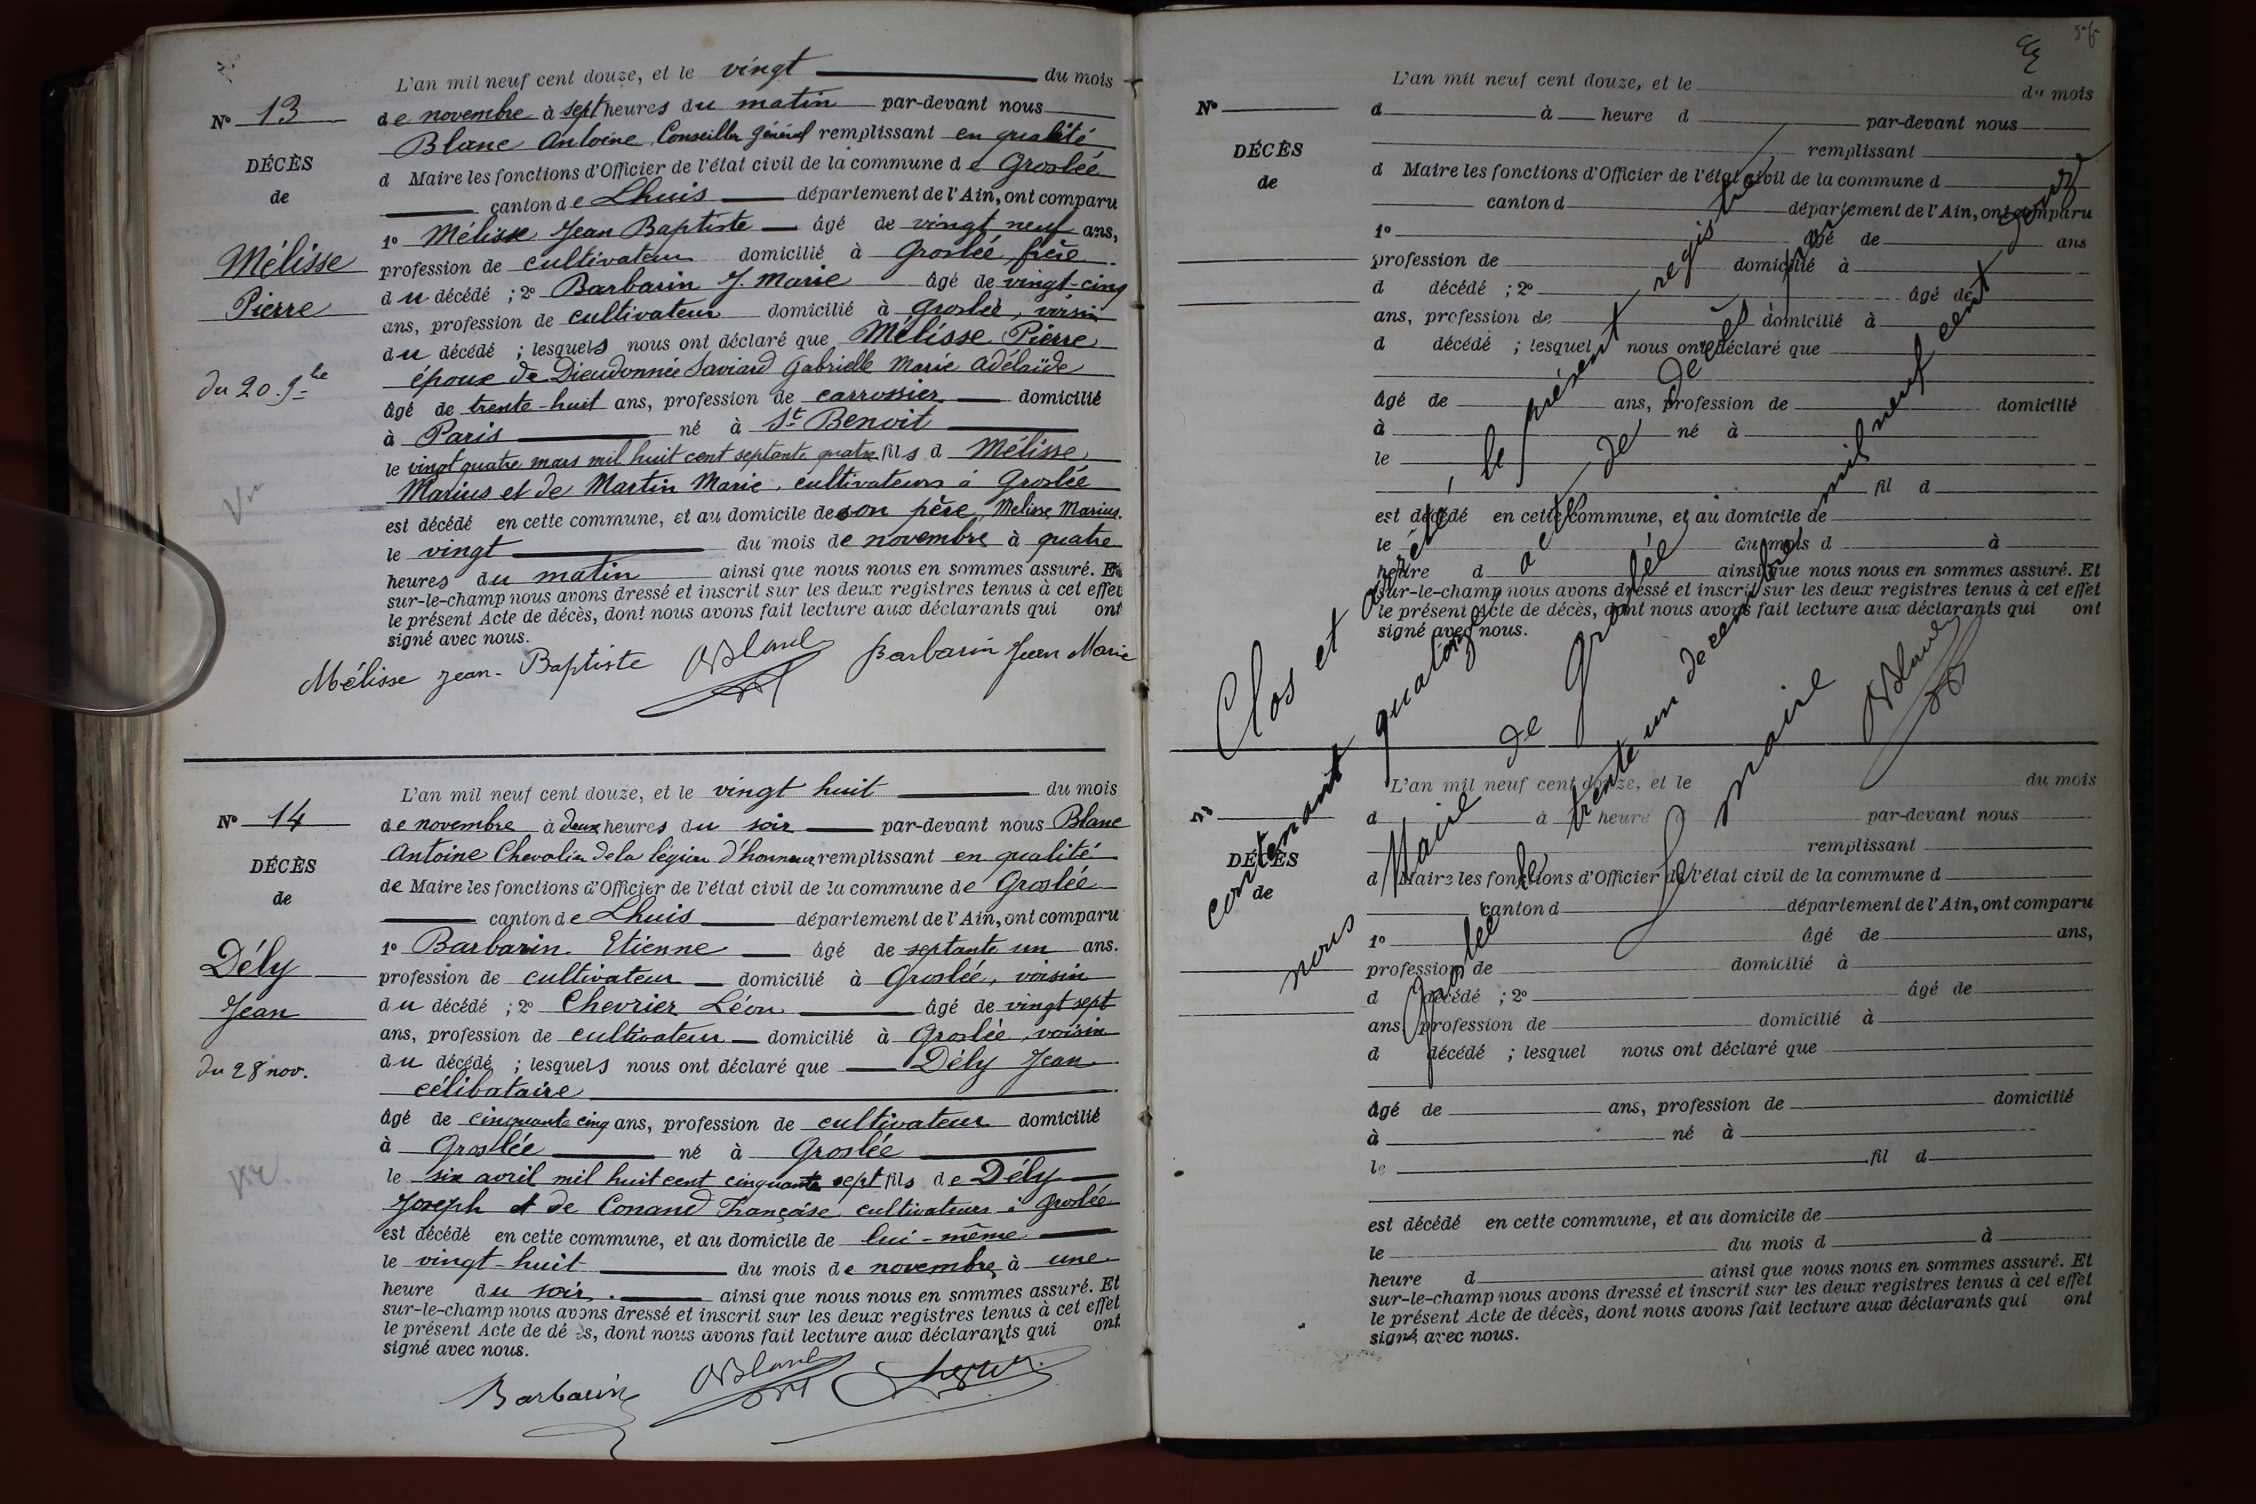 L'an mil neuf cent douze, et le vingt du mois
N° 13
de novembre à sept heures du matin par-devant nous
Blanc Antoine, Conseiller Général remplissant en qualité
DÉCÈS
d Maire les fonctions d'Officier de l'état civil de la commune de Groslée
de
canton de Lhuis département de l'Ain, ont comparu
1° Mélisse Jean Baptiste âgé de vingt neuf ans,
Mélisse
profession de cultivateur domicilié à Groslée, frère
Pierre
du décédé ; 2° Barbarin J. Marie âgé de vingt-cinq
ans, profession de cultivateur domicilié à Groslée, voisin
du décédé ; lesquels nous ont déclaré que Mélisse Pierre
du 20. 9bre
époux de Dieudonnée Saviard Gabrielle Marie Adélaïde
âgé de trente-huit ans, profession de carrossier domicilié
à Paris né à St Benoit
le vingt quatre mars mil huit cent septante quatre fils d Mélisse
Marius et de Martin Marie, cultivateurs à Groslée
est décédé en cette commune, et au domicile de son père, Mélisse Marius.
le vingt du mois de novembre à quatre
heures du matin ainsi que nous nous en sommes assuré. Et
sur-le-champ nous avons dressé et inscrit sur les deux registres tenus à cet effet
le présent Acte de décès, dont nous avons fait lecture aux déclarants qui ont
signé avec nous.
Mélisse Jean-Baptiste ABlanc Barbarin Jean Marie
L'an mil neuf cent douze, et le vingt huit du mois
N° 14
de novembre à deux heures du soir par-devant nous Blanc
Antoine Chevalier de la légion d'honneur remplissant en qualité
DÉCÈS
de Maire les fonctions d'Officier de l'état civil de la commune de Groslée
de
canton de Lhuis département de l'Ain, ont comparu
1° Barbarin Etienne âgé de septante un ans.
Dély
profession de cultivateur domicilié à Groslée, voisin
Jean
du décédé ; 2° Chevrier Léon âgé de vingt sept
ans, profession de cultivateur domicilié à Groslée, voisin
du 28 nov.
du décédé ; lesquels nous ont déclaré que Dély Jean
célibataire
âgé de cinquante cinq ans, profession de cultivateur domicilié
à Groslée né à Groslée
le six avril mil huit cent cinquante sept fils de Dély
Joseph et de Conand Françoise cultivateurs à Groslée
est décédé en cette commune, et au domicile de lui-même
le vingt-huit du mois de novembre à une
heure du soir. ainsi que nous nous en sommes assuré. Et
sur-le-champ nous avons dressé et inscrit sur les deux registres tenus à cet effet
le présent Acte de décès, dont nous avons fait lecture aux déclarants qui ont
signé avec nous.
Barbarin ABlanc
L'an mil neuf cent douze, et le du mois
N°
d à heure d par-devant nous
remplissant
DÉCÈS
d Maire les fonctions d'Officier de l'état civil de la commune d
de
canton d département de l'Ain, ont comparu
1° âgé de ans
profession de domicilié à
d décédé ; 2° âgé de
ans, profession de domicilié à
d décédé ; lesquel nous ont déclaré que
âgé de ans, profession de domicilié
à né à
le
fil d
est décédé en cette commune, et au domicile de
le du mois d à
heure d ainsi que nous nous en sommes assuré. Et
sur-le-champ nous avons dressé et inscrit sur les deux registres tenus à cet effet
le présent Acte de décès, dont nous avons fait lecture aux déclarants qui ont
signé avec nous.
Clos et arrêté, le présent registre
contenant quatorze actes de décès par
nous Maire de Groslée
Groslée le trente un décembre mil neuf cent douze
Le maire
ABlanc
L'an mil neuf cent douze, et le du mois
d à heure d par-devant nous
remplissant
DÉCÈS
d Maire les fonctions d'Officier de l'état civil de la commune d
de
canton d département de l'Ain, ont comparu
1° âgé de ans,
profession de domicilié à
d décédé ; 2° âgé de
ans, profession de domicilié à
d décédé ; lesquel nous ont déclaré que
âgé de ans, profession de domicilié
à né à
le fil d
est décédé en cette commune, et au domicile de
le du mois d à
heure d ainsi que nous nous en sommes assuré. Et
sur-le-champ nous avons dressé et inscrit sur les deux registres tenus à cet effet
le présent Acte de décès, dont nous avons fait lecture aux déclarants qui ont
signé avec nous.